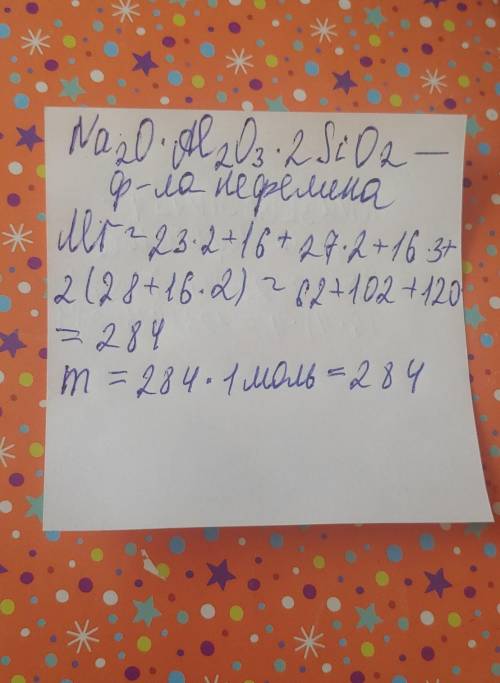 Na₂O·Al₂O₃·2SiO₂ —
ф-ла нефелина
Mr = 23·2+16+27·2+16·3+
2(28+16·2) = 62+102+120
= 284
m = 284·1моль = 284